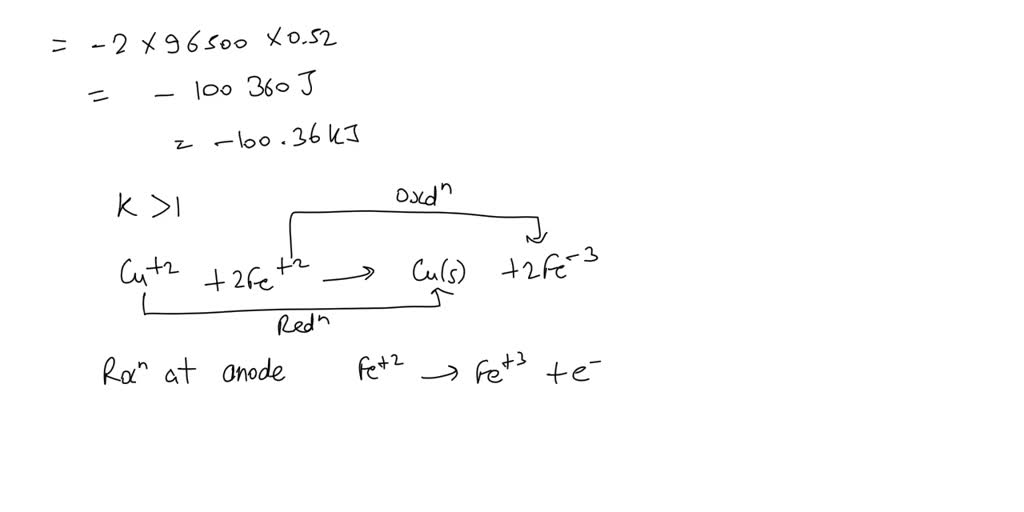 = -2 × 96500 × 0.52
= - 100 360 J
= -100.36 kJ
K >1
Oxdⁿ
Cu⁺² + 2Fe⁺² → Cu(s) + 2Fe⁻³
Redⁿ
Rxⁿ at anode Fe⁺² → Fe⁺³ + e⁻